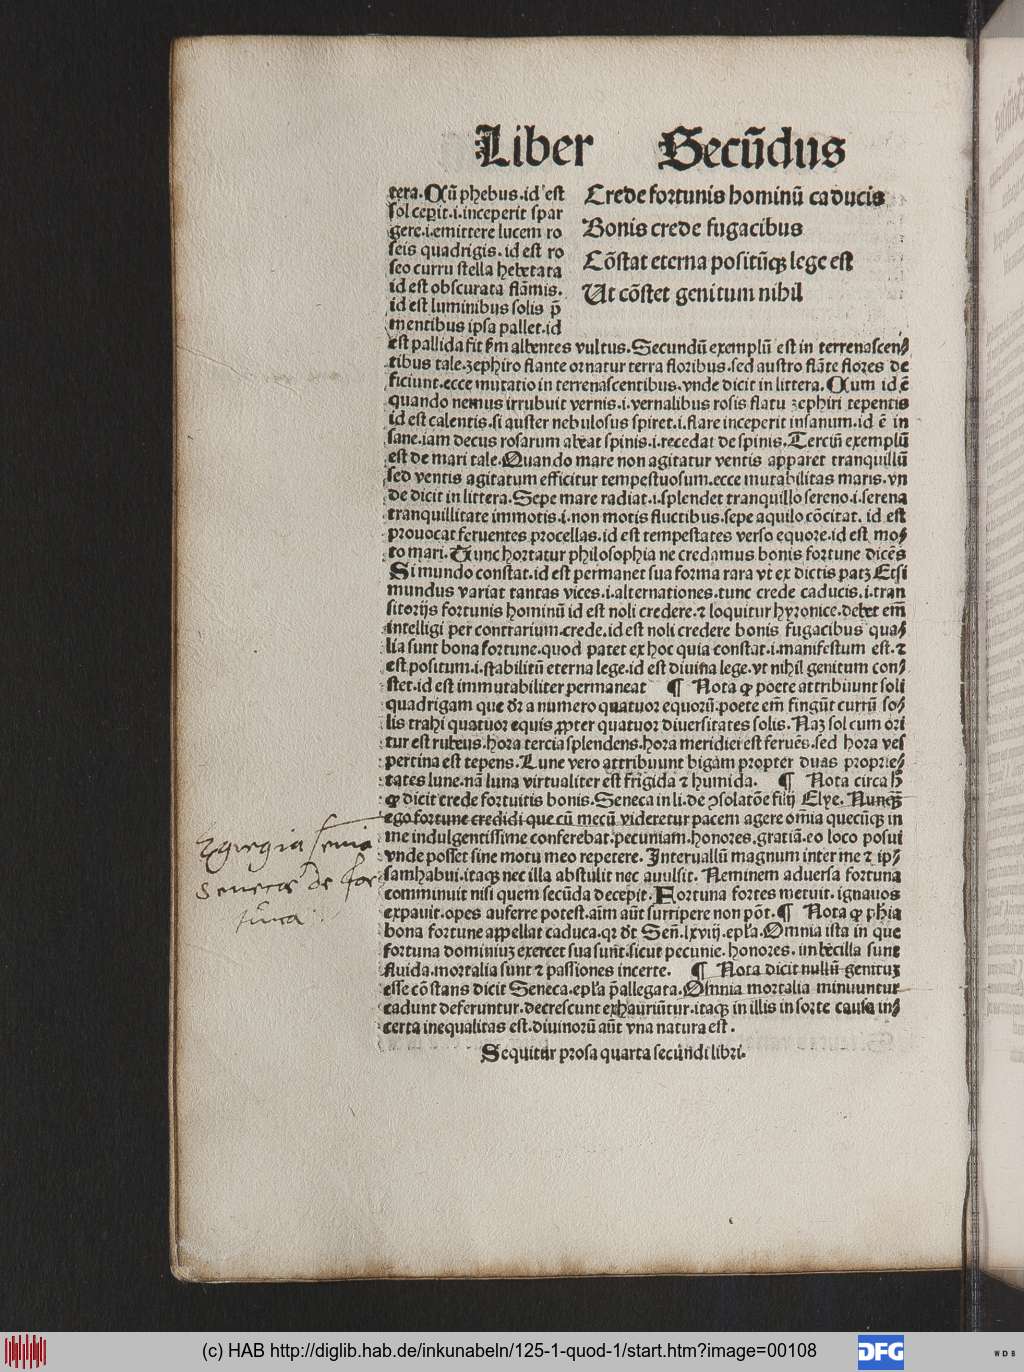 Liber Secūdus
tera. Cū phebus. id est
sol ceperit. i. inceperit spar
gere. i. emittere lucem ro
seis quadrigis. id est ro
seo curru stella hebetata
id est obscurata flāmis.
id est luminibus solis p̄
mentibus ipsa pallet. id
Crede fortunis hominū caducis
Bonis crede fugacibus
Cōstat eterna positūqꝫ lege est
Ut cōstet genitum nihil
est pallida fit sm̄ albentes vultus. Secundū exemplū est in terrenascen⸗
tibus tale. zephiro flante ornatur terra floribus. sed austro flāte flores de
ficiunt. ecce mutatio in terrenascentibus. vnde dicit in littera. Cum id ē
quando nemus irrubuit vernis. i. vernalibus rosis flatu zephiri tepentis
id est calentis. si auster nebulosus spiret. i. flare inceperit insanum. id ē in
sane. iam decus rosarum abeat spinis. i. recedat de spinis. Terciū exemplū
est de mari tale. Quando mare non agitatur ventis apparet tranquillū
sed ventis agitatum efficitur tempestuosum. ecce mutabilitas maris. vn
de dicit in littera. Sepe mare radiat. i. splendet tranquillo sereno. i. serena
tranquillitate immotis. i. non motis fluctibus. sepe aquilo cōcitat. id est
prouocat feruentes procellas. id est tempestates verso equore. id est mo⸗
to mari. Tunc hortatur philosophia ne credamus bonis fortune dicēs
Si mundo constat. id est permanet sua forma rara vt ex dictis patꝫ Etsi
mundus variat tantas vices. i. alternationes. tunc crede caducis. i. tran
sitorijs fortunis hominū id est noli credere. ⁊ loquitur hyronice. debet em̄
intelligi per contrarium. crede. id est noli credere bonis fugacibus qua⸗
lia sunt bona fortune. quod patet ex hoc quia constat. i. manifestum est. ⁊
est positum. i. stabilitū eterna lege. id est diuina lege. vt nihil genitum con⸗
stet. id est immutabiliter permaneat ¶ Nota ꝙ poete attribuunt soli
quadrigam que dr̄ a numero quatuor equorū. poete em̄ fingūt currū so⸗
lis trahi quatuor equis ꝓpter quatuor diuersitates solis. Naꝫ sol cum ori
tur est rubeus. hora tercia splendens. hora meridiei est feruēs. sed hora ves
pertina est tepens. Lune vero attribuunt bigam propter duas proprie⸗
tates lune. nā luna virtualiter est frigida ⁊ humida. ¶ Nota circa h̄
ꝙ dicit crede fortuitis bonis. Seneca in li. de ꝯsolatōe filij Elye. Nunqꝫ̄
ego fortune credidi que cū mecū videretur pacem agere om̄ia quecūqꝫ in
me indulgentissime conferebat. pecuniam. honores. gratiā. eo loco posui
vnde posset sine motu meo repetere. Interuallū magnum inter me ⁊ ip⸗
sam habui. itaqꝫ nec illa abstulit nec auulsit. Neminem aduersa fortuna
comminuit nisi quem secūda decepit. Fortuna fortes metuit. ignauos
expauit. opes auferre potest. aīm aūt surripere non pōt. ¶ Nota ꝙ phīa
bona fortune appellat caduca. qr dt̄ Sen̄. lxviij. epl̄a. Omnia ista in que
fortuna dominiuꝫ exercet sua sunt. sicut pecunie. honores. imbecilla sunt
fluida. mortalia sunt ⁊ passiones incerte. ¶ Nota dicit nullū genituꝫ
esse cōstans dicit Seneca. epl̄a p̄allegata. Omnia mortalia minuuntur
cadunt deferuntur. decrescunt exhauriūtur. itaqꝫ in illis in sorte causa in⸗
certa inequalitas est. diuinorū aūt vna natura est.
Sequitur prosa quarta secundi libri.
Egregia
Senecæ de for
tuna
(c) HAB http://diglib.hab.de/inkunabeln/125-1-quod-1/start.htm?image=00108
DFG
WDB